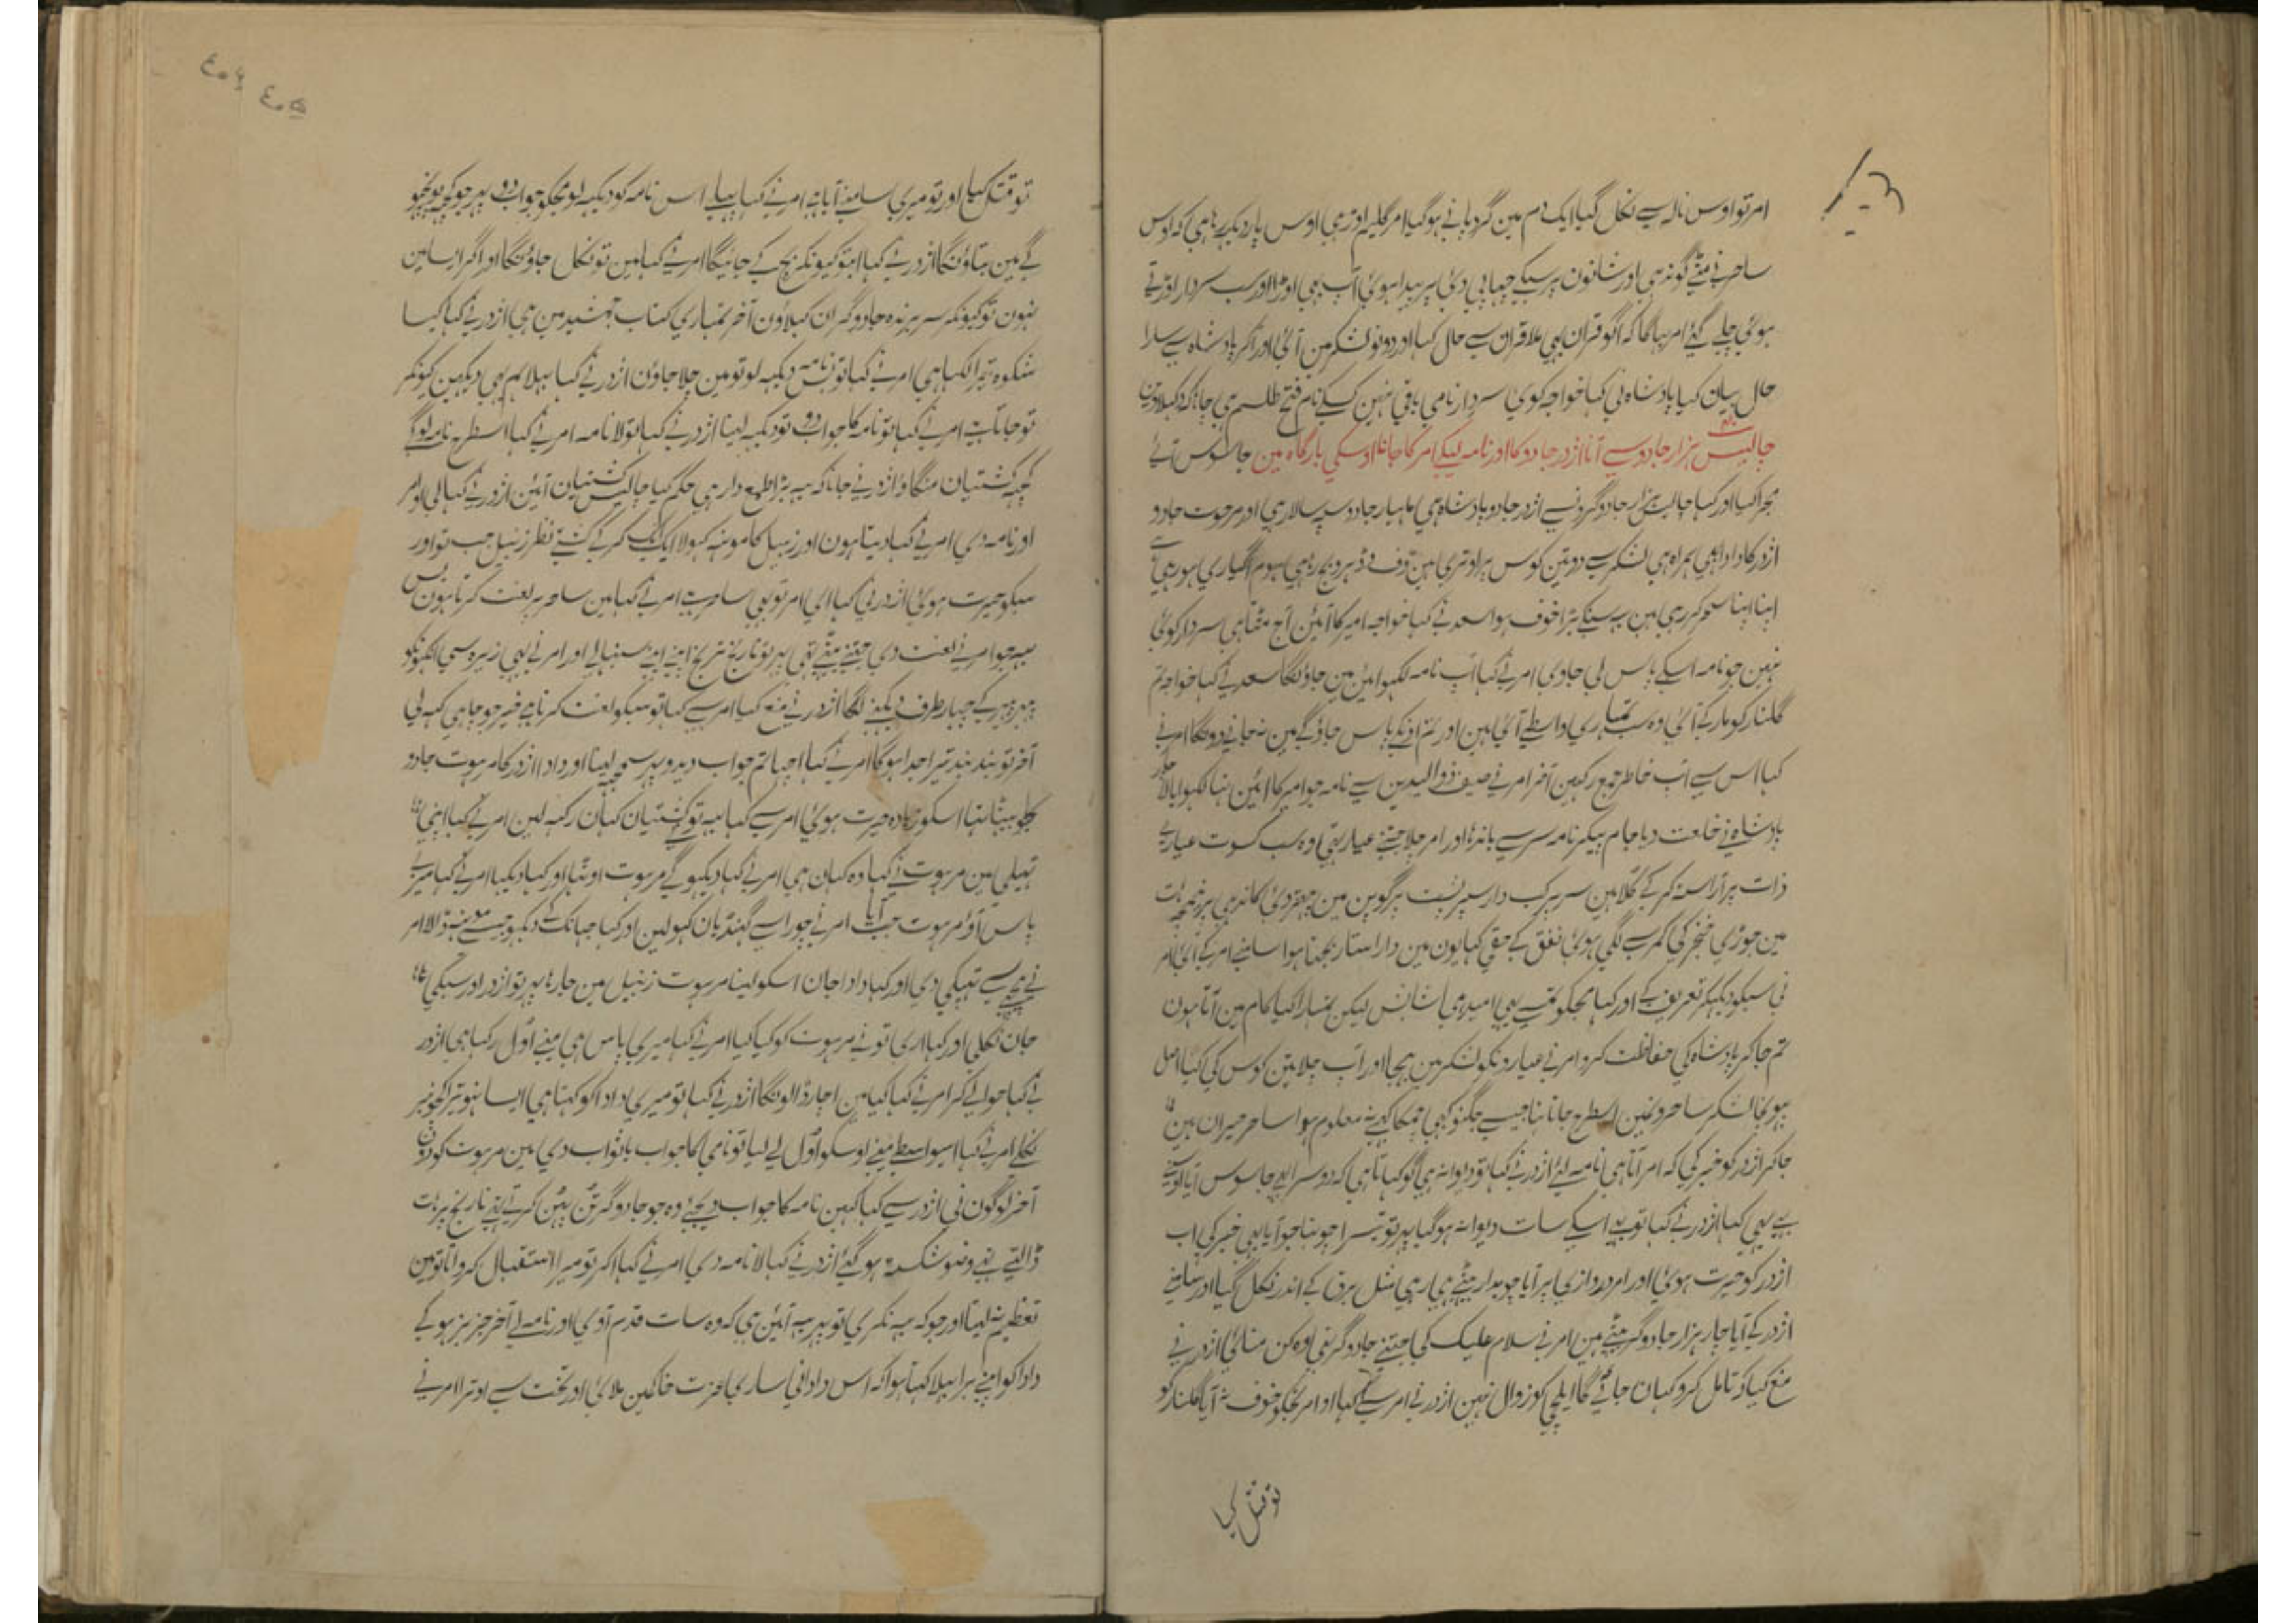 امر تو اوس نالہ سے نکل گیا ایک دم مین گرد پانے ہو گیا امر گلیم اوڑہی اوس پار دیکہ رہا ہی کہ اوس
ساحر نے مٹے گوندہی اور شانون پر سبکے چپا پی دی پر پیدا ہوئی آپ بہی اوڑا اور سب سردار اوڑتے
ہوئی چلے گئے امر بہاگا کہ اگو قران بہی ملا قران سے حال کہا اور دونو لشکر مین آئی اور اکر بادشاہ سے سارا
حال بیان کیا بادشاہ نی کہا خواجہ کوی سردار نامی باقی نہین کسکے نام فتح طلسم ہی
چالیس ہزار جادو سے آنا اژدر جادو کا اور نامہ لیکے امر کا جانا اوسکی بارگاہ مین جاسوس آئے
مجرا کیا اور کہا چالیس ہزار جادوگرونسے اژدر جادو بادشاہ ہی ماہیار جادو سپہ سالار ہی اور مرہوت جادو
اژدر کا دادا بہی ہمراہ ہی لشکر سے دو تین کوس پر اوتری ہین دف و دہرو بج رہے ہی ہوم اگیاری ہو رہی
اپنا اپنا سحر کر رہی ہین یہ سنکے بڑا خوف ہوا سعد نے کہا خواجہ امیر کا آئین آج مٹتا ہی سردار کوئی
نہین جو نامہ اسکے پاس لی جاوی امر نے کہا آپ نامہ لکہوائین مین جاؤنگا سعد نے کہا خواجہ تم
گلنار کو مار کے آئی وہ سب تمہاری واسطے آئی ہین اور تم اونکے پاس جاؤ گے مین نہ جانے دونگا امر نے
کہا اس سے آپ خاطر جمع رکہین آخر امر نے صیف ذوالیدین سے نامہ جو امیر کا آئین تہا لکہوایا
بادشاہ نے خلعت دیا جام پیکر نامہ سر سے باندہا اور امر چلا جتنے عیار تہی وہ سب کسوت عیاری
ذات پر آراستہ کر کے کلاہین سر پر کب دار سپر پشت پر گوپن مین پتہر دی کاندہی پر نیمچہ ہات
مین جوڑی خنجر کی کمر سے لگی ہوئی نفق کے حقی کہایون مین دار استار بجتا ہوا سامنے امر کے آئی امر
نی سبکو دیکہکر تعریف کے اور کہا مجکو تمسے یہی امید ہی شاباش لیکن تمہارا کیا کام مین آتا ہون
تم جا کر بادشاہ کی حفاظت کرو امر نے عیارونکو لشکر مین بہیجا اور آپ چلا تین کوس کی کیا اصل
پہونچا لشکر ساحرونمین اسطرح جاتا تہا جیسے جگنو کبہی چمکا کبہی نہ معلوم ہوا ساحر حیران ہین
جا کر اژدر کو خبر کی کہ امر آتا ہی نامہ لیئے اژدر نے کہا تو دیوانہ ہی گو کہاتا ہی کہ دوسرا بہی جاسوس آیا اوسنے
بہی یہی کہا اژدر نے کہا تو بہی اسکے سات دیوانہ ہو گیا پہر تو تیسرا چوتہا جو آیا یہی خبر کی اب
اژدر کو حیرت ہوئی اور امر دروازی پر آیا چوبدار بیٹہے ہی رہی مثل برق کے اندر نکل گیا اور سامنے
اژدر کے آیا چار ہزار جادوگر بیٹہے ہین امر نے سلام علیک کی جتنے جادوگر تہی اژدر نے
منع کیا کہ تامل کرو کہان جائے گا ایلچی کو زوال نہین اژدر نے امر سے کہا او امر تجکو خوف نہ آیا گلنار کو
تو قتل کیا
تو قتل کیا اور تو میری سامنے آیا ہی امر نے کہا پہلے اس نامہ کو دیکہہ لو مجکو جواب دو پہر جو کچہہ پونچہو
گے مین بتاؤنگا اژدر نے کہا اب تو کیونکر بچ کے جائیگا امر نے کہا مین تو نکل جاؤنگا اور اگر ایسا مین
نہون تو کیونکر سر برندہ جادوگران کہلاؤن آخر تمہاری کتاب جمشید مین ہی اژدر نے کہا کیا
شکوہ تیرا لکہا ہی امر نے کہا تو نامہ دیکہہ لو تو مین چلا جاؤن اژدر نے کہا بہلا ہم بہی دیکہین کیونکر
تو جاتا ہے امر نے کہا تو نامہ کا جواب دو تو دیکہہ لینا اژدر نے کہا تو لا نامہ امر نے کہا اسطرح نامہ لو گے
کچہہ کشتیان منگاؤ اژدر نے جانا کہ یہ بڑا طمع دار ہی حکم کیا چالیس کشتیان آئین اژدر نے کہا لی او امر
اور نامہ دی امر نے کہا دیتا ہون اور زنبیل کا مونہہ کہولا ایک ایک کر کے کشتے نظر زنبیل جب تو اور
سبکو حیرت ہوئی اژدر نی کہا ای امر تو بہی ساحر ہے امر نے کہا مین ساحر پر لعنت کرتا ہون بس
یہ جو امر نے لعنت دی جتنے بیٹہے تہی پہر تو نارنج ترنج اپنے اپنے سنبہالے اور امر نے بہی زہرہ سی انکہونکو
پہر پہر کے چہار طرف دیکہنے لگا اژدر نے منع کیا امر سے کہا تو سبکو لعنت کرتا ہے خیر جو چاہی کہہ لی
آخر تو بند بند تیرا جدا ہو گا امر نے کہا اچہا تم جواب دیدو پہر سمجہہ لینا اور دادا اژدر کا مرہوت جادو
جو بیٹہا تہا اسکو زیادہ حیرت ہوئی امر سے کہا یہ تو نے کشتیان کہان رکہہ لین امر نے کہا اپنی
تہیلی مین مرہوت نے کہا وہ کہان ہی امر نے کہا دیکہو گے مرہوت اوٹہا اور کہا دیکہا امر نے کہا میرے
پاس آؤ مرہوت جب آیا امر نے چورا سے گہنڈیان کہولین اور کہا جہانک کے دیکہو جیسے مونہہ ڈالا امر
نے پیچہے سے تہپکی دی اور کہا دادا جان اسکو لینا مرہوت زنبیل مین جا رہا پہر تو اژدر اور سبکی
جان نکلی اور کہا اری تو نے مرہوت کو کیا کیا امر نے کہا میری پاس ہی مینے اول رکہا ہی اژدر
نے کہا حوالے کر امر نے کہا کیا مین اچار ڈالونگا اژدر نے کہا تو میری دادا کو کہتا ہی ایسا نہو تیرا کچومر
نکلے امر نے کہا اسیواسطے مینے اوسکو اول لے لیا تو نامی کا جواب باثواب دی مین مرہوت کو دون
آخر لوگون نی اژدر سے کہا کہین نامہ کا جواب دیجئے وہ جو جادوگر پٹن پٹن کرتے تہے نارنج پر ہات
ڈالتے تہے وضو شکستہ ہو گئے اژدر نے کہا لا نامہ دی امر نے کہا اگر تو میرا استقبال کرواتا تو مین
تعظیم نہ لیتا اور جو کہ یہ نکری تو پہر یہ آئین ہی کہ وہ سات قدم آوی اور نامہ لے آخر جز بز ہو کے
دادا کو اپنے برا بہلا کہتا ہوا کہ اس دادا نی ساری عزت خاکمین ملائی اور تخت سے اوترا امر نے